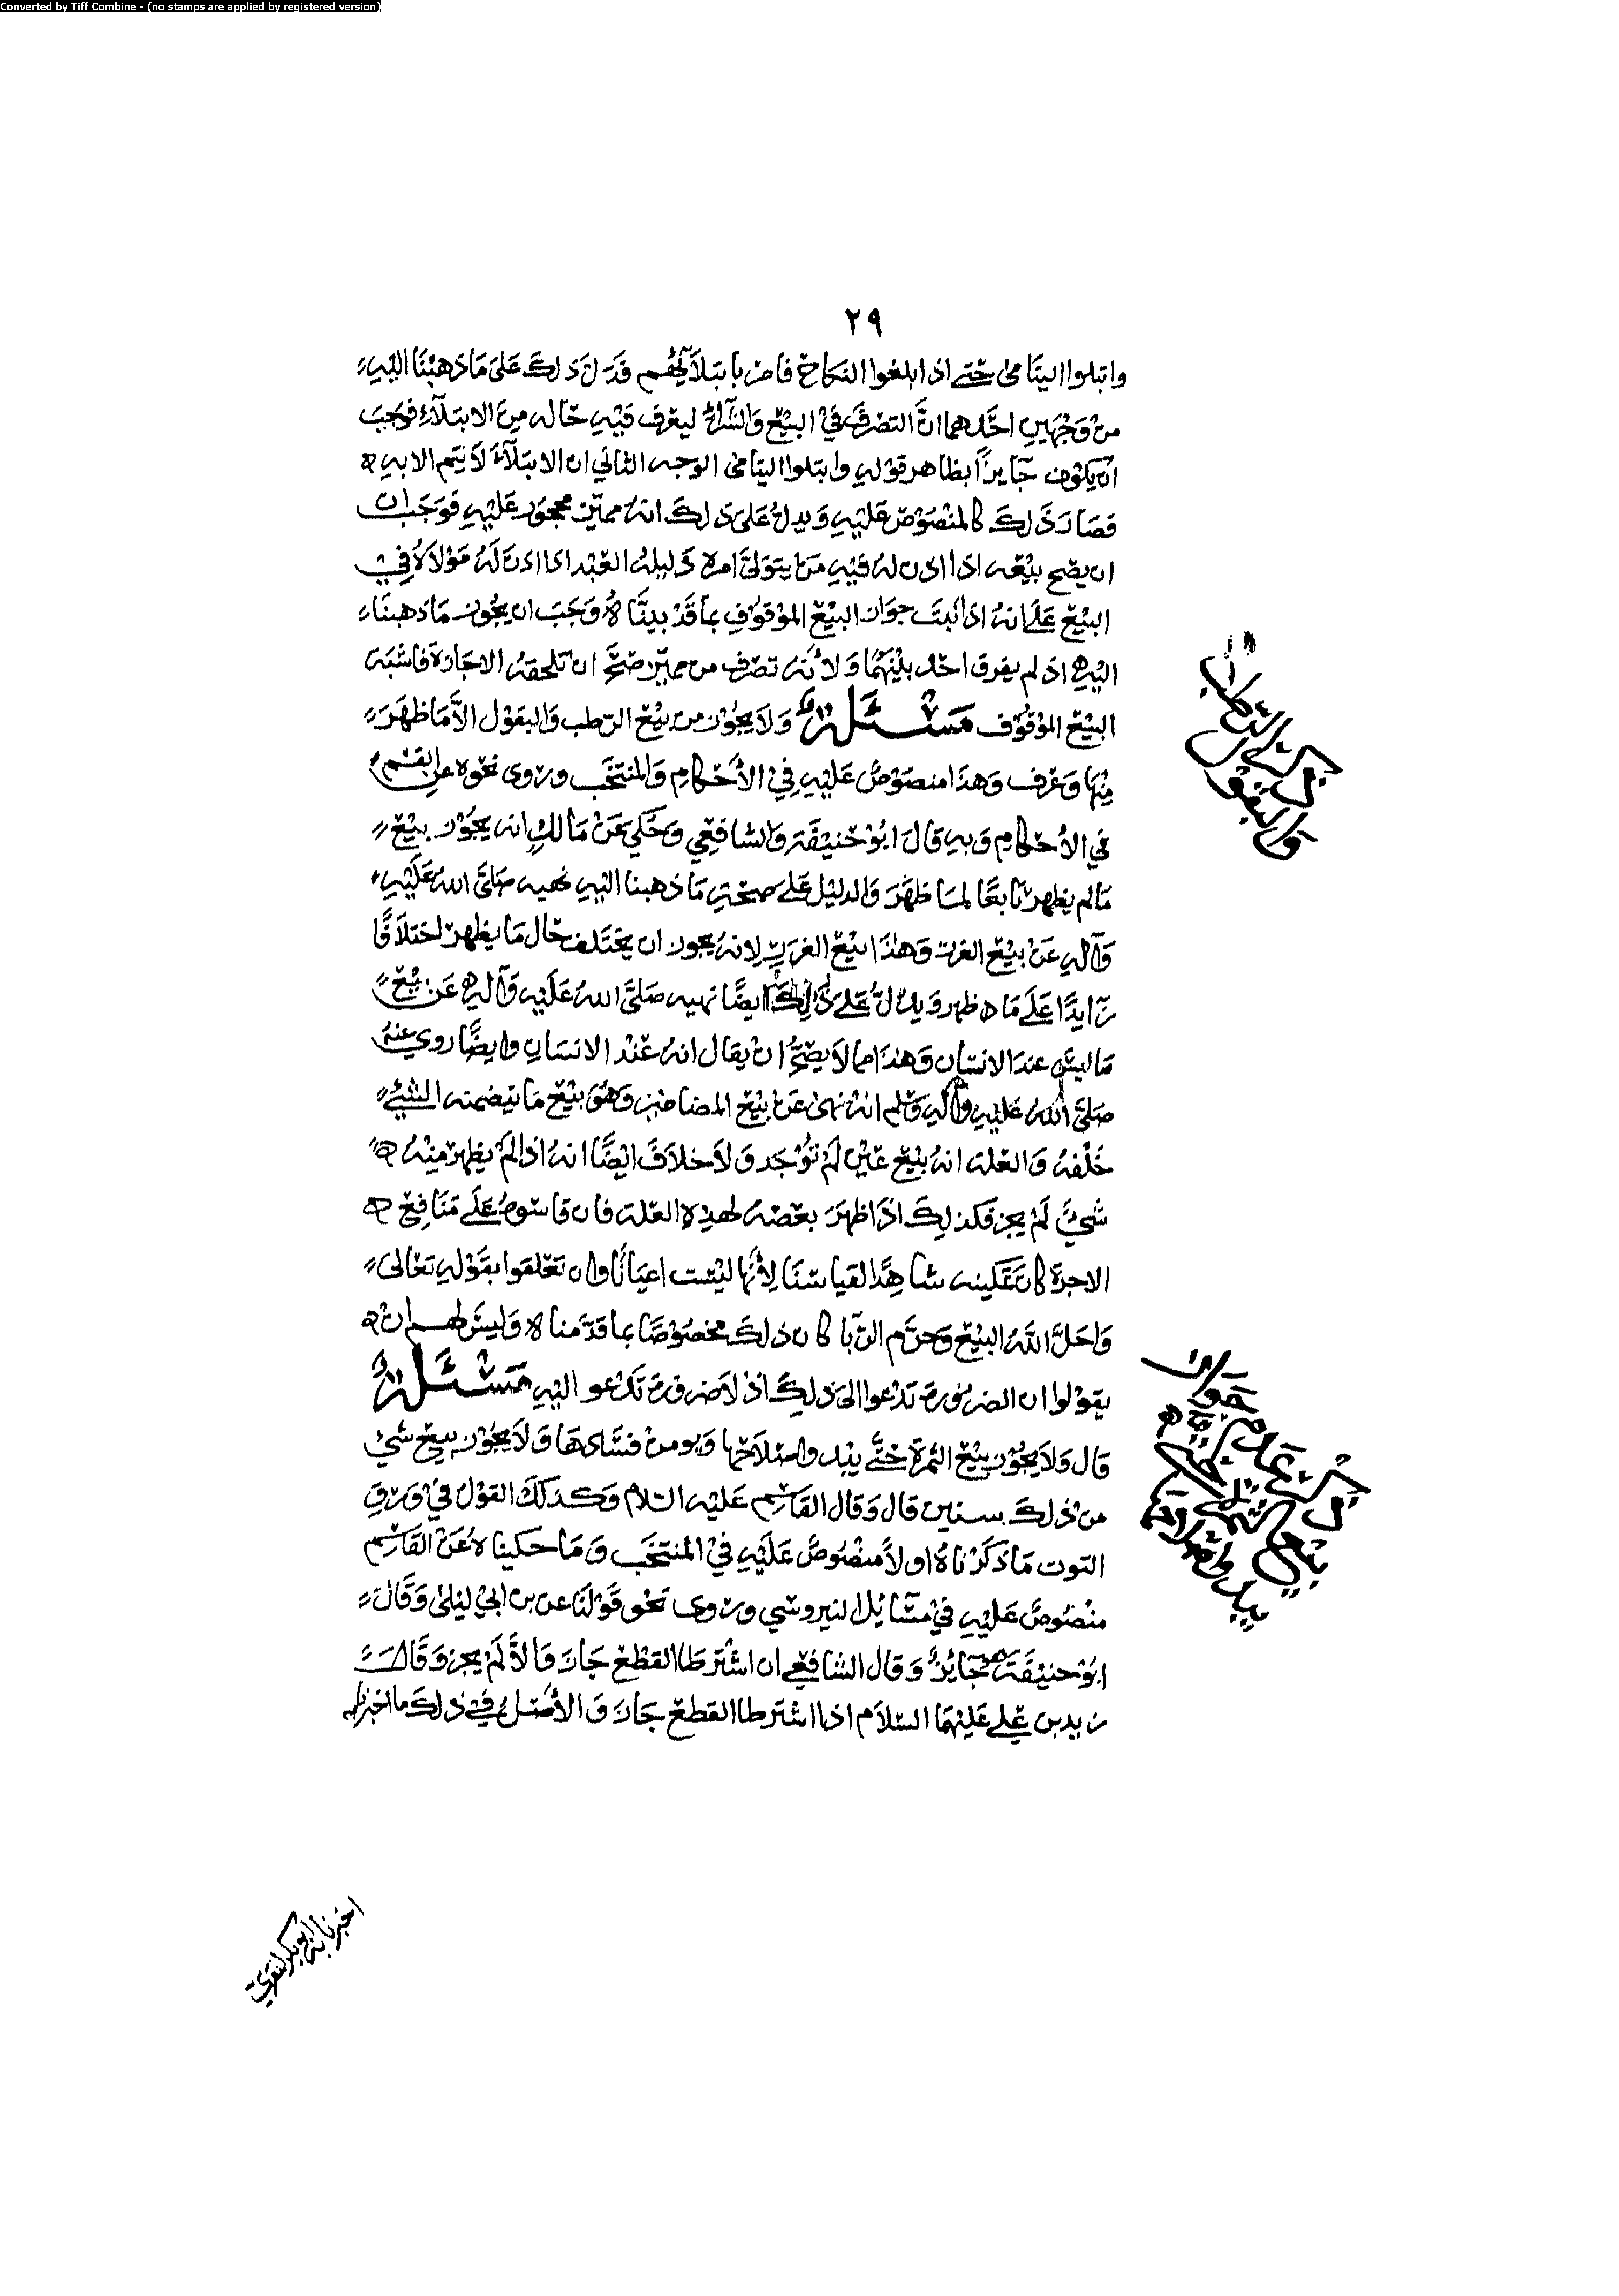 Converted by Tiff Combine - (no stamps are applied by registered version)
٢٩
وابتلوا اليتامى حتى اذا بلغوا النكاح فامر بابتلآئهم فدل ذلك على ما ذهبنا اليه
من وجهين احدهما ان التصرف في البيع والشراء ليعرف فيه حاله من الابتلآء فوجب
ان يكون جايزاً بظاهر قوله وابتلوا اليتامى الوجه الثاني ان الابتلآء لا يتم الا به
فصار ذلك كالمنصوص عليه ويدل على ذلك انه مميز محجور عليه فوجب ان
ان يصح بيعه اذا اذن له فيه من يتولى امره دليله العبد اذا اذن له مولاه في
البيع على انه اذا ثبت جواز البيع الموقوف بما قد بيناه وجب ان يجوز ما ذهبنا
اليه اذ لم يفرق احد بينهما ولأنه تصرف من مميز صح ان تلحقه الاجازة فاشبه
البيع الموقوف مسئلة ولا يجوز من بيع الرطب والبقول الا ما ظهر
منها وعرف وهذا منصوص عليه في الأحكام والمنتخب وروى نحوه عن القسم
في الأحكام وبه قال ابو حنيفة والشافعي وحكي عن مالك انه يجوز بيع
ما لم يظهر تابعًا لما ظهر والدليل على صحة ما ذهبنا اليه نهيه صلى الله عليه
وآله عن بيع الغرر وهذا بيع الغرر لانه يجوز ان يختلف حال ما يظهر اختلافًا
زايدًا على ما ظهر ويدل على ذلك ايضًا نهيه صلى الله عليه وآله عن بيع
ما ليس عند الانسان وهذا مما لا يصح ان يقال انه عند الانسان وايضًا روي عنه
صلى الله عليه وآله وسلم انه نهى عن بيع المضامين وهو بيع ما تضمنه الشيء
خلفه والعلة انه بيع عين لم توجد ولا خلاف ايضًا انه اذا لم يظهر منه
شيء لم يجز فكذلك اذا ظهر بعضه لهذه العلة فان قاسوه على منافع
الاجرة كان شاهدًا لقياسنا لأنها ليست اعيانًا وان تعلقوا بقوله تعالى
واحل الله البيع وحرم الربا كان ذلك مخصوصًا بما قدمناه وليس لهم ان
يقولوا ان الضرورة تدعوا الى ذلك اذ لا ضرورة تدعو اليه مسئلة
قال ولا يجوز بيع الثمرة حتى يبدو اصلاحها ويومن فسادها ولا يجوز بيع شيء
من ذلك سنين قال وقال القاسم عليه السلام وكذلك القول في ورق
التوت ما ذكرناه اولاً منصوص عليه في المنتخب وما حكيناه عن القاسم
منصوص عليه في مسائل النيروسي وروى نحو قولنا عن بن ابي ليلى وقال
ابو حنيفة جايز وقال الشافعي ان اشترطا القطع جاز والا لم يجز وقال
زيد بن علي عليهما السلام اذا اشترطا القطع جاز والأصل في ذلك ما اخبرنا به
الرطب
والبقول
بيع الثمر
اخبرنا به ابو بكر المقري